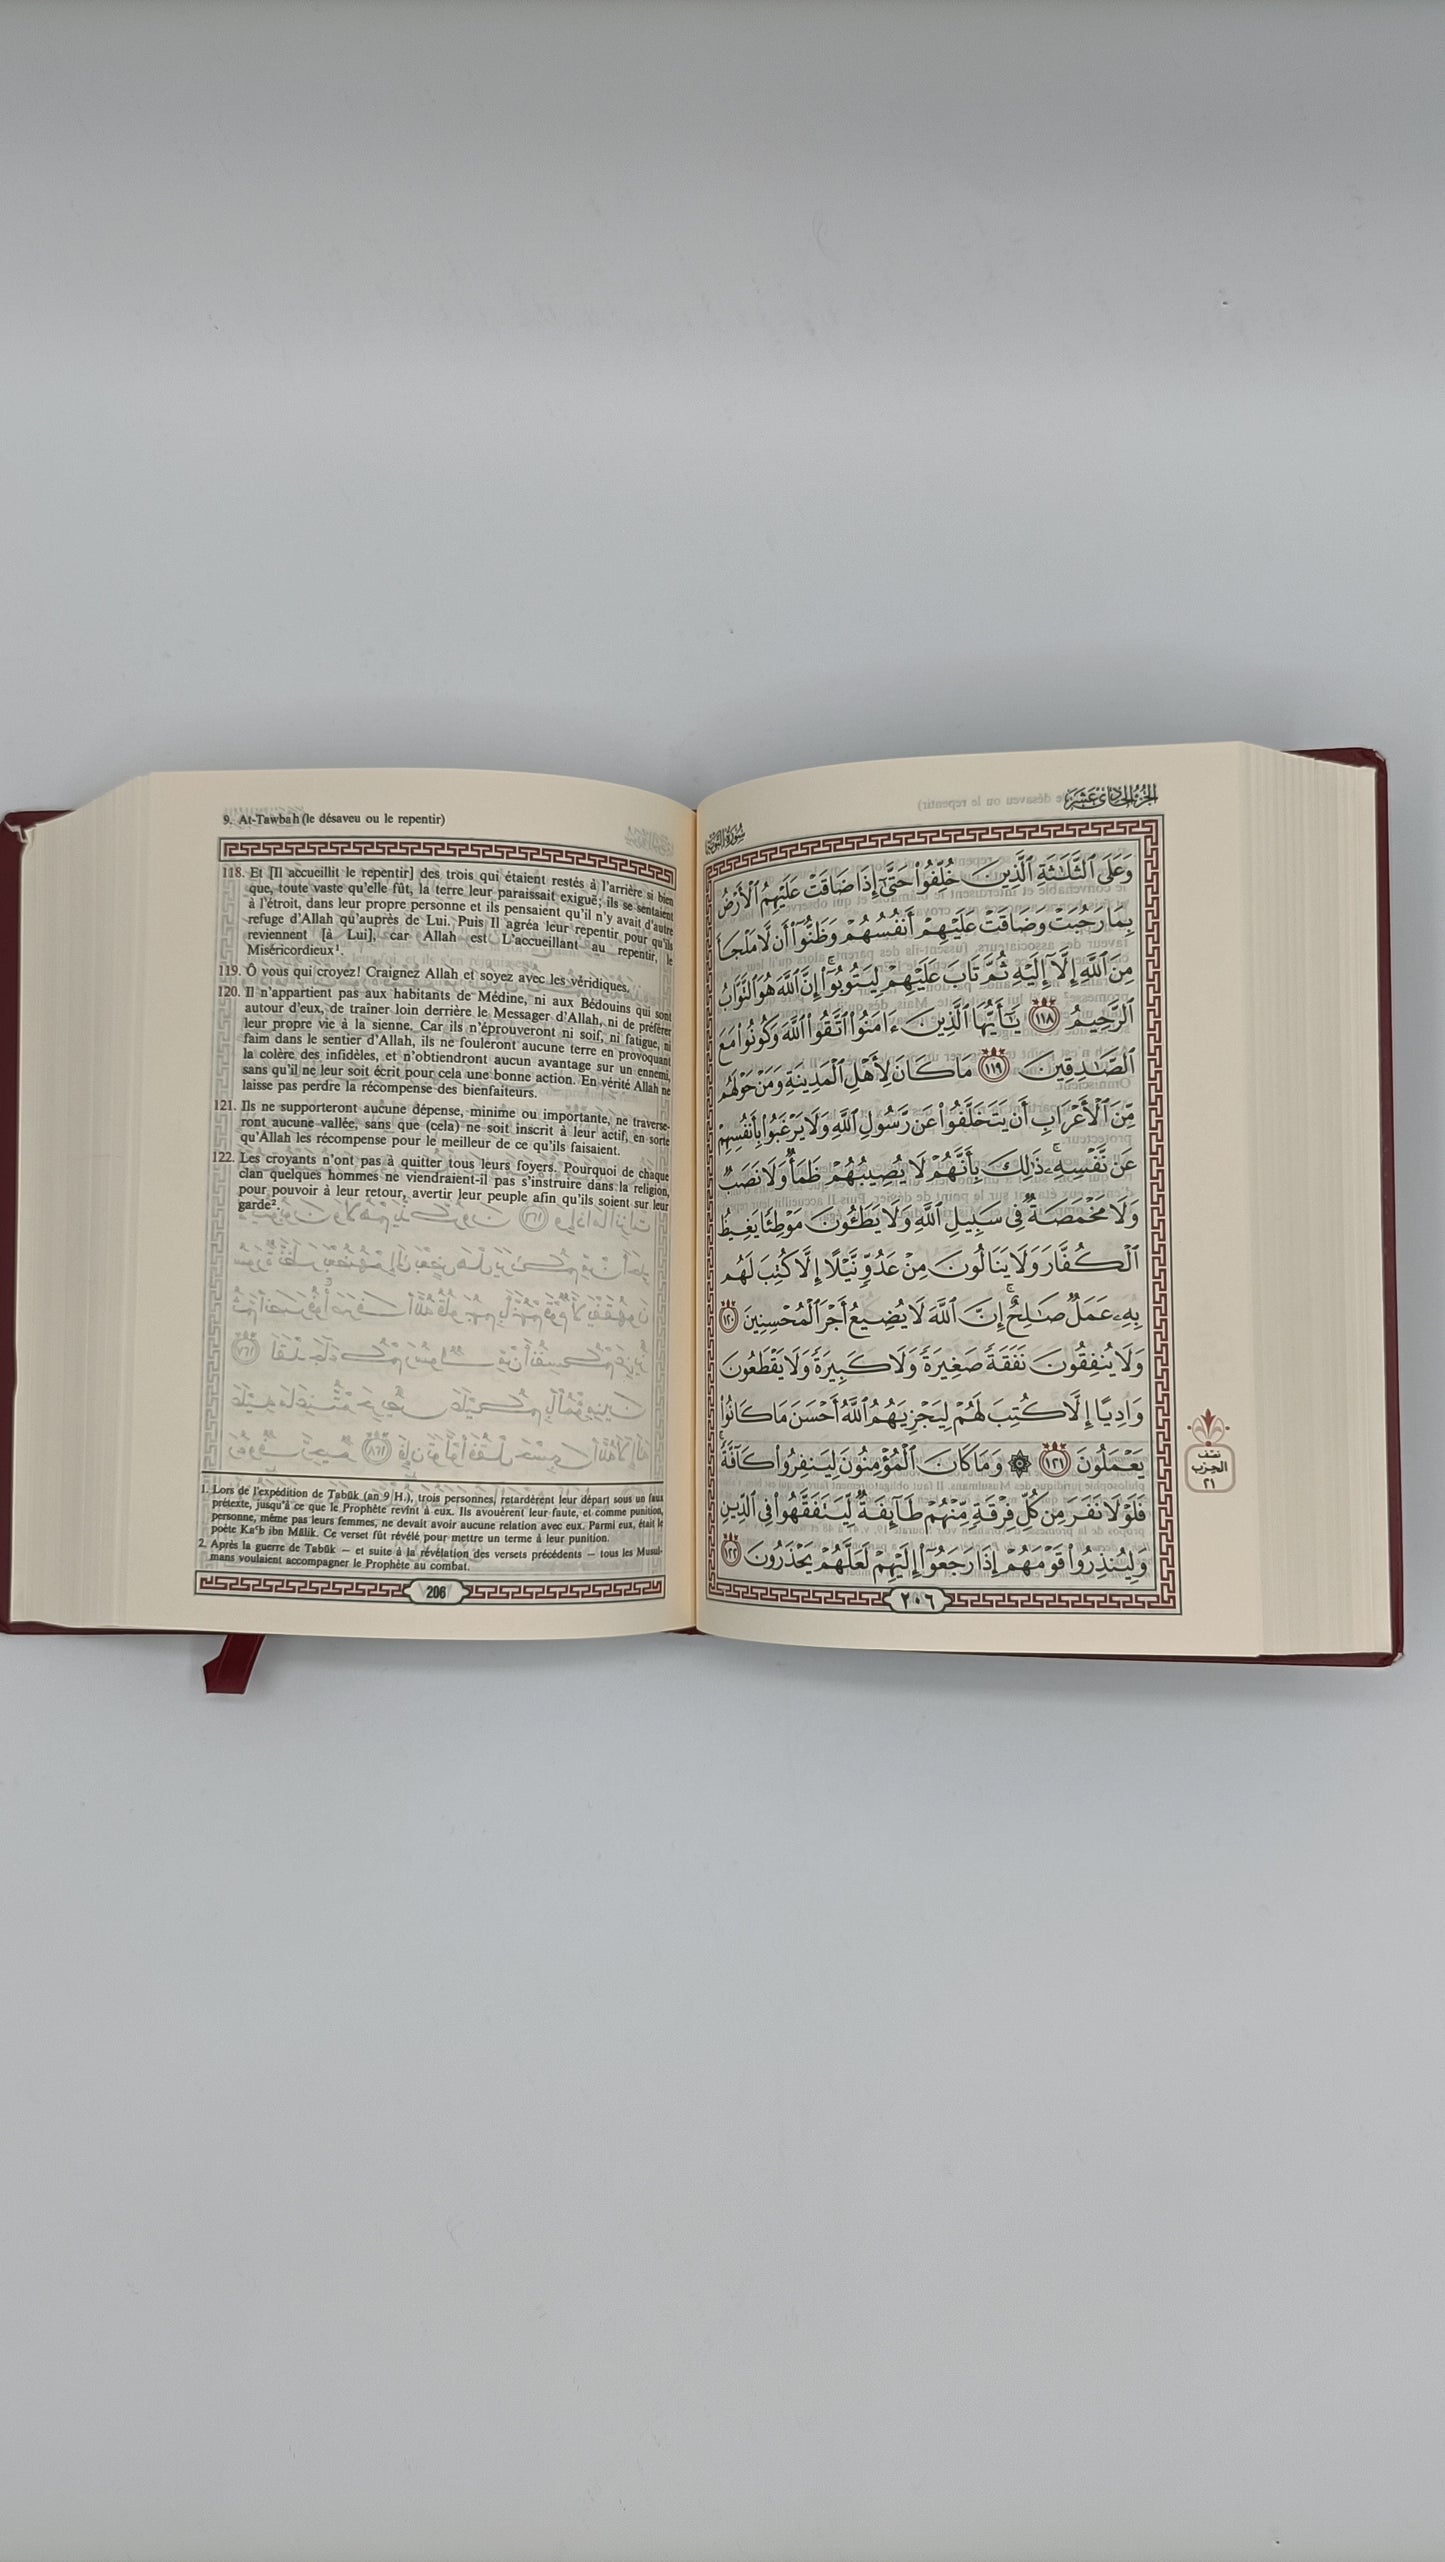 9. At-Tawbah (le désaveu ou le repentir)
118. Et [Il accueillit le repentir] des trois qui étaient restés à l'arrière si bien
que, toute vaste qu'elle fût, la terre leur paraissait exiguë; ils se sentaient
à l'étroit, dans leur propre personne et ils pensaient qu'il n'y avait d'autre
refuge d'Allah qu'auprès de Lui. Puis Il agréa leur repentir pour qu'ils
reviennent [à Lui], car Allah est L'accueillant au repentir, le
Miséricordieux¹.
119. Ô vous qui croyez! Craignez Allah et soyez avec les véridiques.
120. Il n'appartient pas aux habitants de Médine, ni aux Bédouins qui sont
autour d'eux, de traîner loin derrière le Messager d'Allah, ni de préférer
leur propre vie à la sienne. Car ils n'éprouveront ni soif, ni fatigue, ni
faim dans le sentier d'Allah, ils ne fouleront aucune terre en provoquant
la colère des infidèles, et n'obtiendront aucun avantage sur un ennemi,
sans qu'il ne leur soit écrit pour cela une bonne action. En vérité Allah ne
laisse pas perdre la récompense des bienfaiteurs.
121. Ils ne supporteront aucune dépense, minime ou importante, ne traverse-
ront aucune vallée, sans que (cela) ne soit inscrit à leur actif, en sorte
qu'Allah les récompense pour le meilleur de ce qu'ils faisaient.
122. Les croyants n'ont pas à quitter tous leurs foyers. Pourquoi de chaque
clan quelques hommes ne viendraient-il pas s'instruire dans la religion,
pour pouvoir à leur retour, avertir leur peuple afin qu'ils soient sur leur
garde².
1. Lors de l'expédition de Tabūk (an 9 H.), trois personnes, retardèrent leur départ sous un faux
prétexte, jusqu'à ce que le Prophète revînt à eux. Ils avouèrent leur faute, et comme punition,
personne, même pas leurs femmes, ne devait avoir aucune relation avec eux. Parmi eux, était le
poète Kaᶜb ibn Mālik. Ce verset fût révélé pour mettre un terme à leur punition.
2. Après la guerre de Tabūk — et suite à la révélation des versets précédents — tous les Musul-
mans voulaient accompagner le Prophète au combat.
206
الجزء الحادي عشر
سورة التوبة
وَعَلَى ٱلثَّلَٰثَةِ ٱلَّذِينَ خُلِّفُوا۟ حَتَّىٰٓ إِذَا ضَاقَتْ عَلَيْهِمُ ٱلْأَرْضُ
بِمَا رَحُبَتْ وَضَاقَتْ عَلَيْهِمْ أَنفُسُهُمْ وَظَنُّوٓا۟ أَن لَّا مَلْجَأَ
مِنَ ٱللَّهِ إِلَّآ إِلَيْهِ ثُمَّ تَابَ عَلَيْهِمْ لِيَتُوبُوٓا۟ ۚ إِنَّ ٱللَّهَ هُوَ ٱلتَّوَّابُ
ٱلرَّحِيمُ ١١٨ يَٰٓأَيُّهَا ٱلَّذِينَ ءَامَنُوا۟ ٱتَّقُوا۟ ٱللَّهَ وَكُونُوا۟ مَعَ
ٱلصَّٰدِقِينَ ١١٩ مَا كَانَ لِأَهْلِ ٱلْمَدِينَةِ وَمَنْ حَوْلَهُم
مِّنَ ٱلْأَعْرَابِ أَن يَتَخَلَّفُوا۟ عَن رَّسُولِ ٱللَّهِ وَلَا يَرْغَبُوا۟ بِأَنفُسِهِمْ
عَن نَّفْسِهِۦ ۚ ذَٰلِكَ بِأَنَّهُمْ لَا يُصِيبُهُمْ ظَمَأٌ وَلَا نَصَبٌ
وَلَا مَخْمَصَةٌ فِى سَبِيلِ ٱللَّهِ وَلَا يَطَـُٔونَ مَوْطِئًا يَغِيظُ
ٱلْكُفَّارَ وَلَا يَنَالُونَ مِنْ عَدُوٍّ نَّيْلًا إِلَّا كُتِبَ لَهُم
بِهِۦ عَمَلٌ صَٰلِحٌ ۚ إِنَّ ٱللَّهَ لَا يُضِيعُ أَجْرَ ٱلْمُحْسِنِينَ ١٢٠
وَلَا يُنفِقُونَ نَفَقَةً صَغِيرَةً وَلَا كَبِيرَةً وَلَا يَقْطَعُونَ
وَادِيًا إِلَّا كُتِبَ لَهُمْ لِيَجْزِيَهُمُ ٱللَّهُ أَحْسَنَ مَا كَانُوا۟
يَعْمَلُونَ ١٢١ ۞ وَمَا كَانَ ٱلْمُؤْمِنُونَ لِيَنفِرُوا۟ كَآفَّةً ۚ
فَلَوْلَا نَفَرَ مِن كُلِّ فِرْقَةٍ مِّنْهُمْ طَآئِفَةٌ لِّيَتَفَقَّهُوا۟ فِى ٱلدِّينِ
وَلِيُنذِرُوا۟ قَوْمَهُمْ إِذَا رَجَعُوٓا۟ إِلَيْهِمْ لَعَلَّهُمْ يَحْذَرُونَ ١٢٢
نصف
الحزب
٢١
٢٠٦